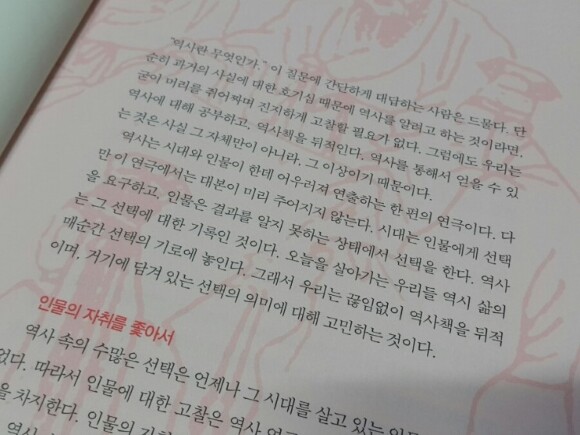 "역사란 무엇인가." 이 질문에 간단하게 대답하는 사람은 드물다. 단
순히 과거의 사실에 대한 호기심 때문에 역사를 알려고 하는 것이라면,
굳이 머리를 쥐어짜며 진지하게 고찰할 필요가 없다. 그럼에도 우리는
역사에 대해 공부하고, 역사책을 뒤적인다. 역사를 통해서 얻을 수 있
는 것은 사실 그 자체만이 아니라, 그 이상이기 때문이다.
역사는 시대와 인물이 한데 어우러져 연출하는 한 편의 연극이다. 다
만 이 연극에서는 대본이 미리 주어지지 않는다. 시대는 인물에게 선택
을 요구하고, 인물은 결과를 알지 못하는 상태에서 선택을 한다. 역사
는 그 선택에 대한 기록인 것이다. 오늘을 살아가는 우리들 역시 삶의
매순간 선택의 기로에 놓인다. 그래서 우리는 끊임없이 역사책을 뒤적
이며, 거기에 담겨 있는 선택의 의미에 대해 고민하는 것이다.
인물의 자취를 좇아서
역사 속의 수많은 선택은 언제나 그 시대를 살고 있는
없다. 따라서 인물에 대한 고찰은 역사
을 차지한다. 인물의
역사